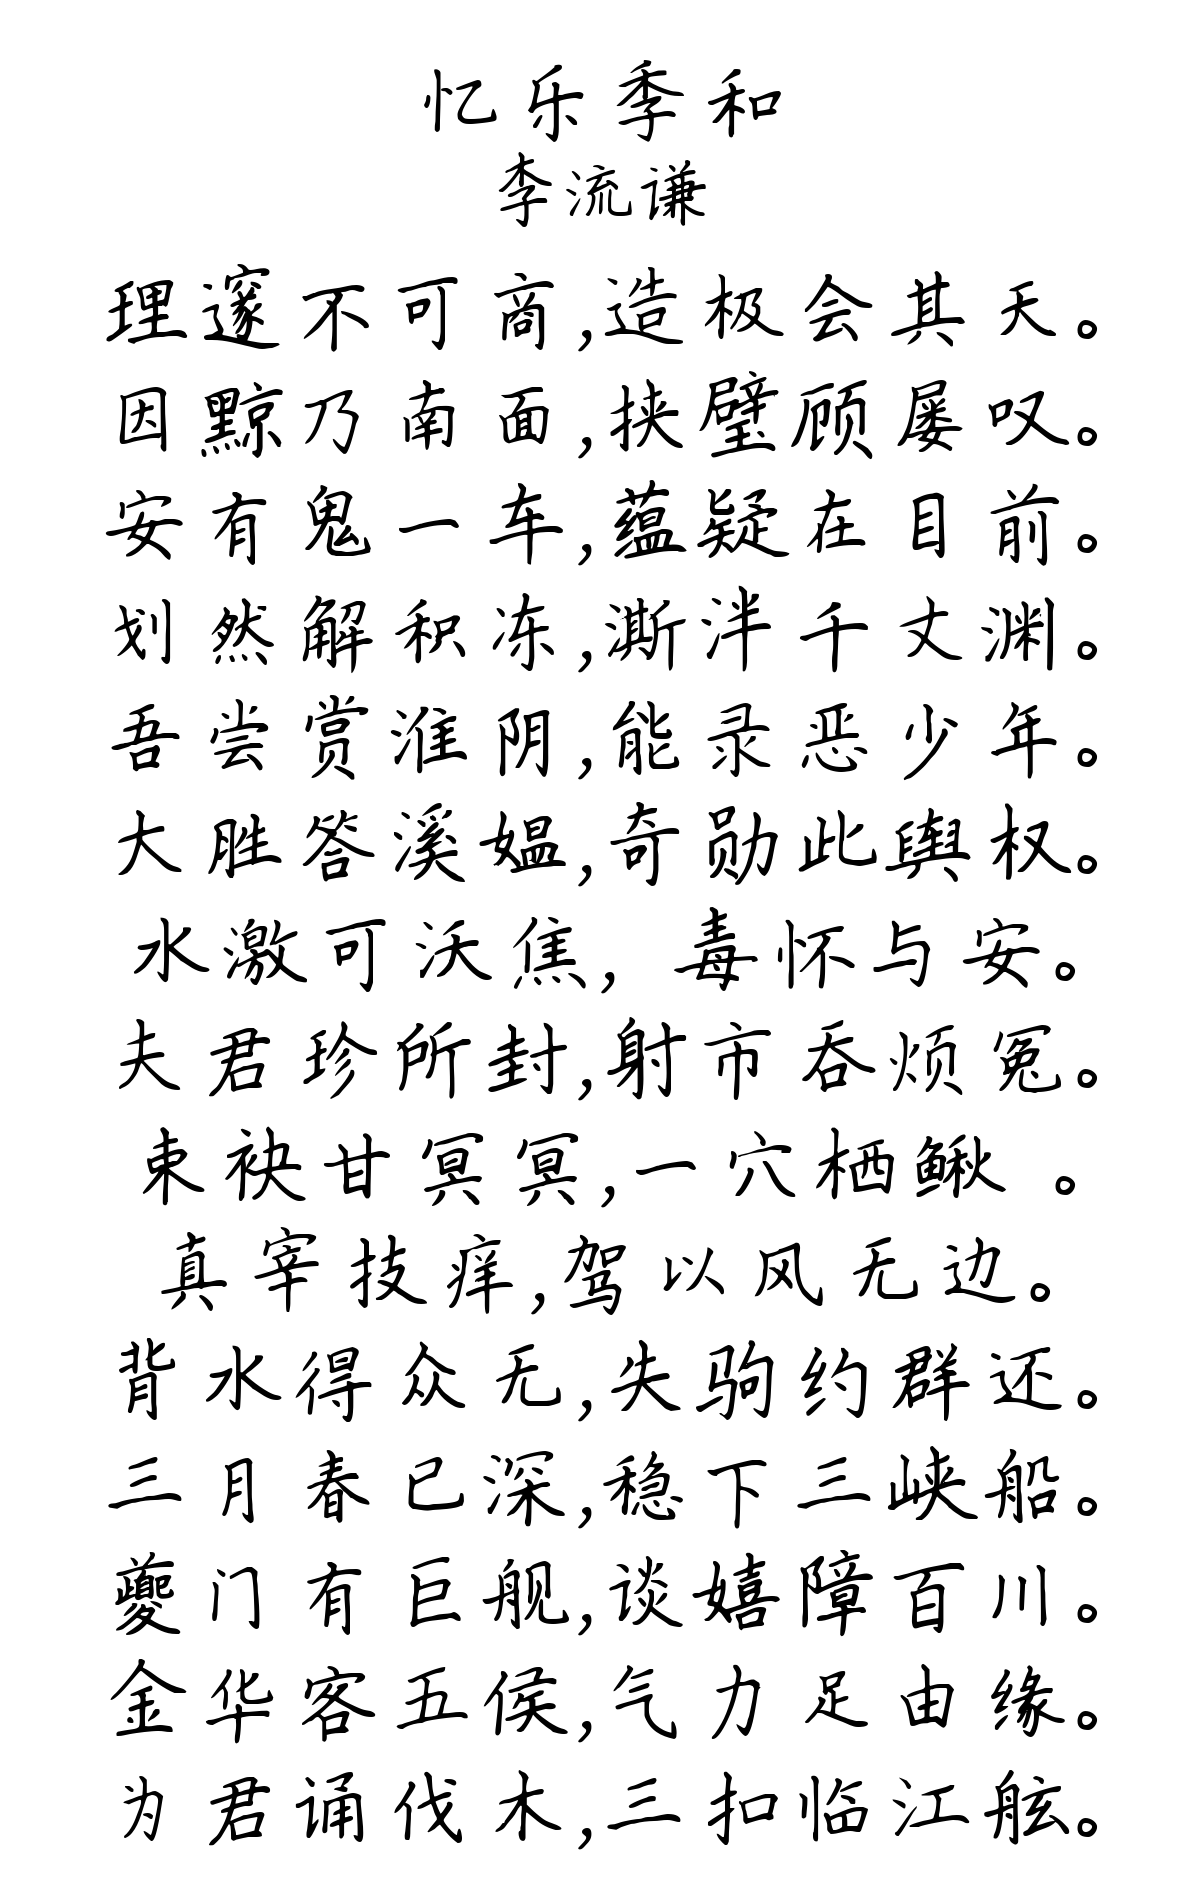 忆乐季和
李流谦
理邃不可商,造极会其天。
因黥乃南面,挟璧顾屡叹。
安有鬼一车,蕴疑在目前。
划然解积冻,澌泮千丈渊。
吾尝赏淮阴,能录恶少年。
大胜答溪媪,奇勋此舆权。
水激可沃焦,毒怀与安。
夫君珍所封,射市吞烦冤。
束袂甘冥冥,一穴栖鳅。
真宰技痒,驾以风无边。
背水得众无,失驹约群还。
三月春已深,稳下三峡船。
夔门有巨舰,谈嬉障百川。
金华客五侯,气力足由缘。
为君诵伐木,三扣临江舷。